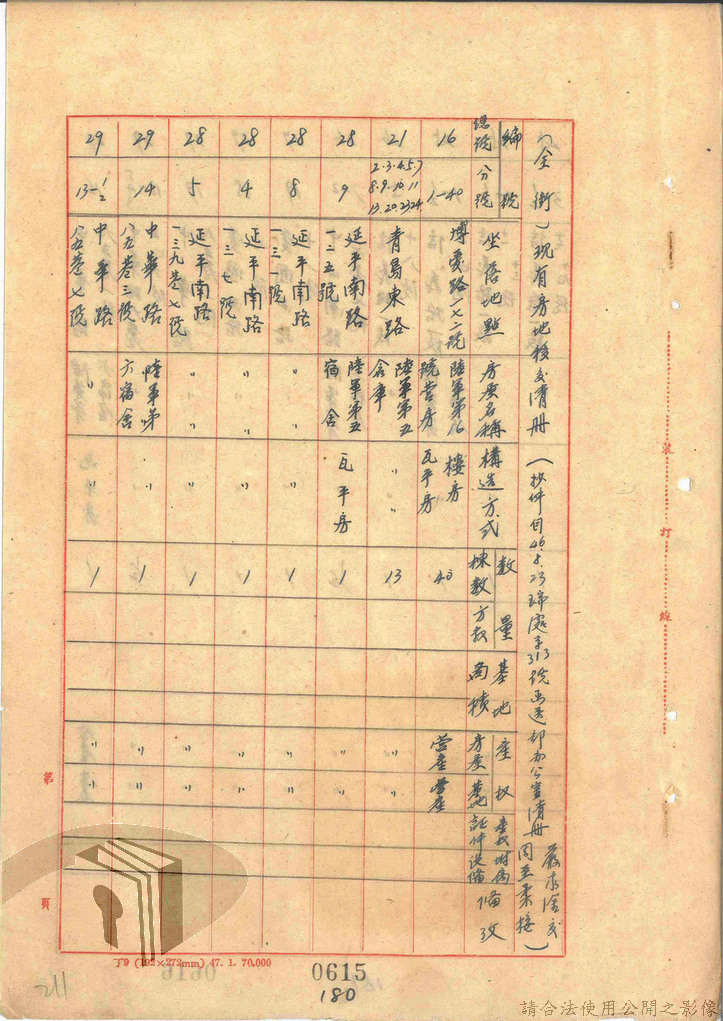 (全銜)現有房地核交清冊(抄件自46.8.23瑞處字313號函送部辦公室清冊
編號
總號
分號
坐落地點
房屋名稱
構造方式
數量
棟數
方數
基地
面積
產权
房屋
基地
備攷
16
1-40
博愛路一七二號
陸軍第16
號營房
樓房
瓦平房
40
營產
營產
21
2.3.4.5.7
8.9.10.11
13.20.23.24
青島東路
陸軍第五
舍庫
〃
13
〃
〃
28
9
延平南路
一二五號
陸軍第五
宿舍
瓦平房
1
〃
〃
28
8
延平南路
一三一號
〃
〃
1
〃
〃
28
4
延平南路
一三七號
〃
〃
1
〃
〃
28
5
延平南路
一三九巷七號
〃
〃
1
〃
〃
29
14
中華路
八五巷三號
陸軍第
六宿舍
〃
1
〃
〃
29
13-1/2
中華路
八五巷七號
〃
〃
1
〃
〃
裝訂線
第
頁
丁9 (192×272mm) 47. 1. 70,000
0615
180
211
請合法使用公開之影像